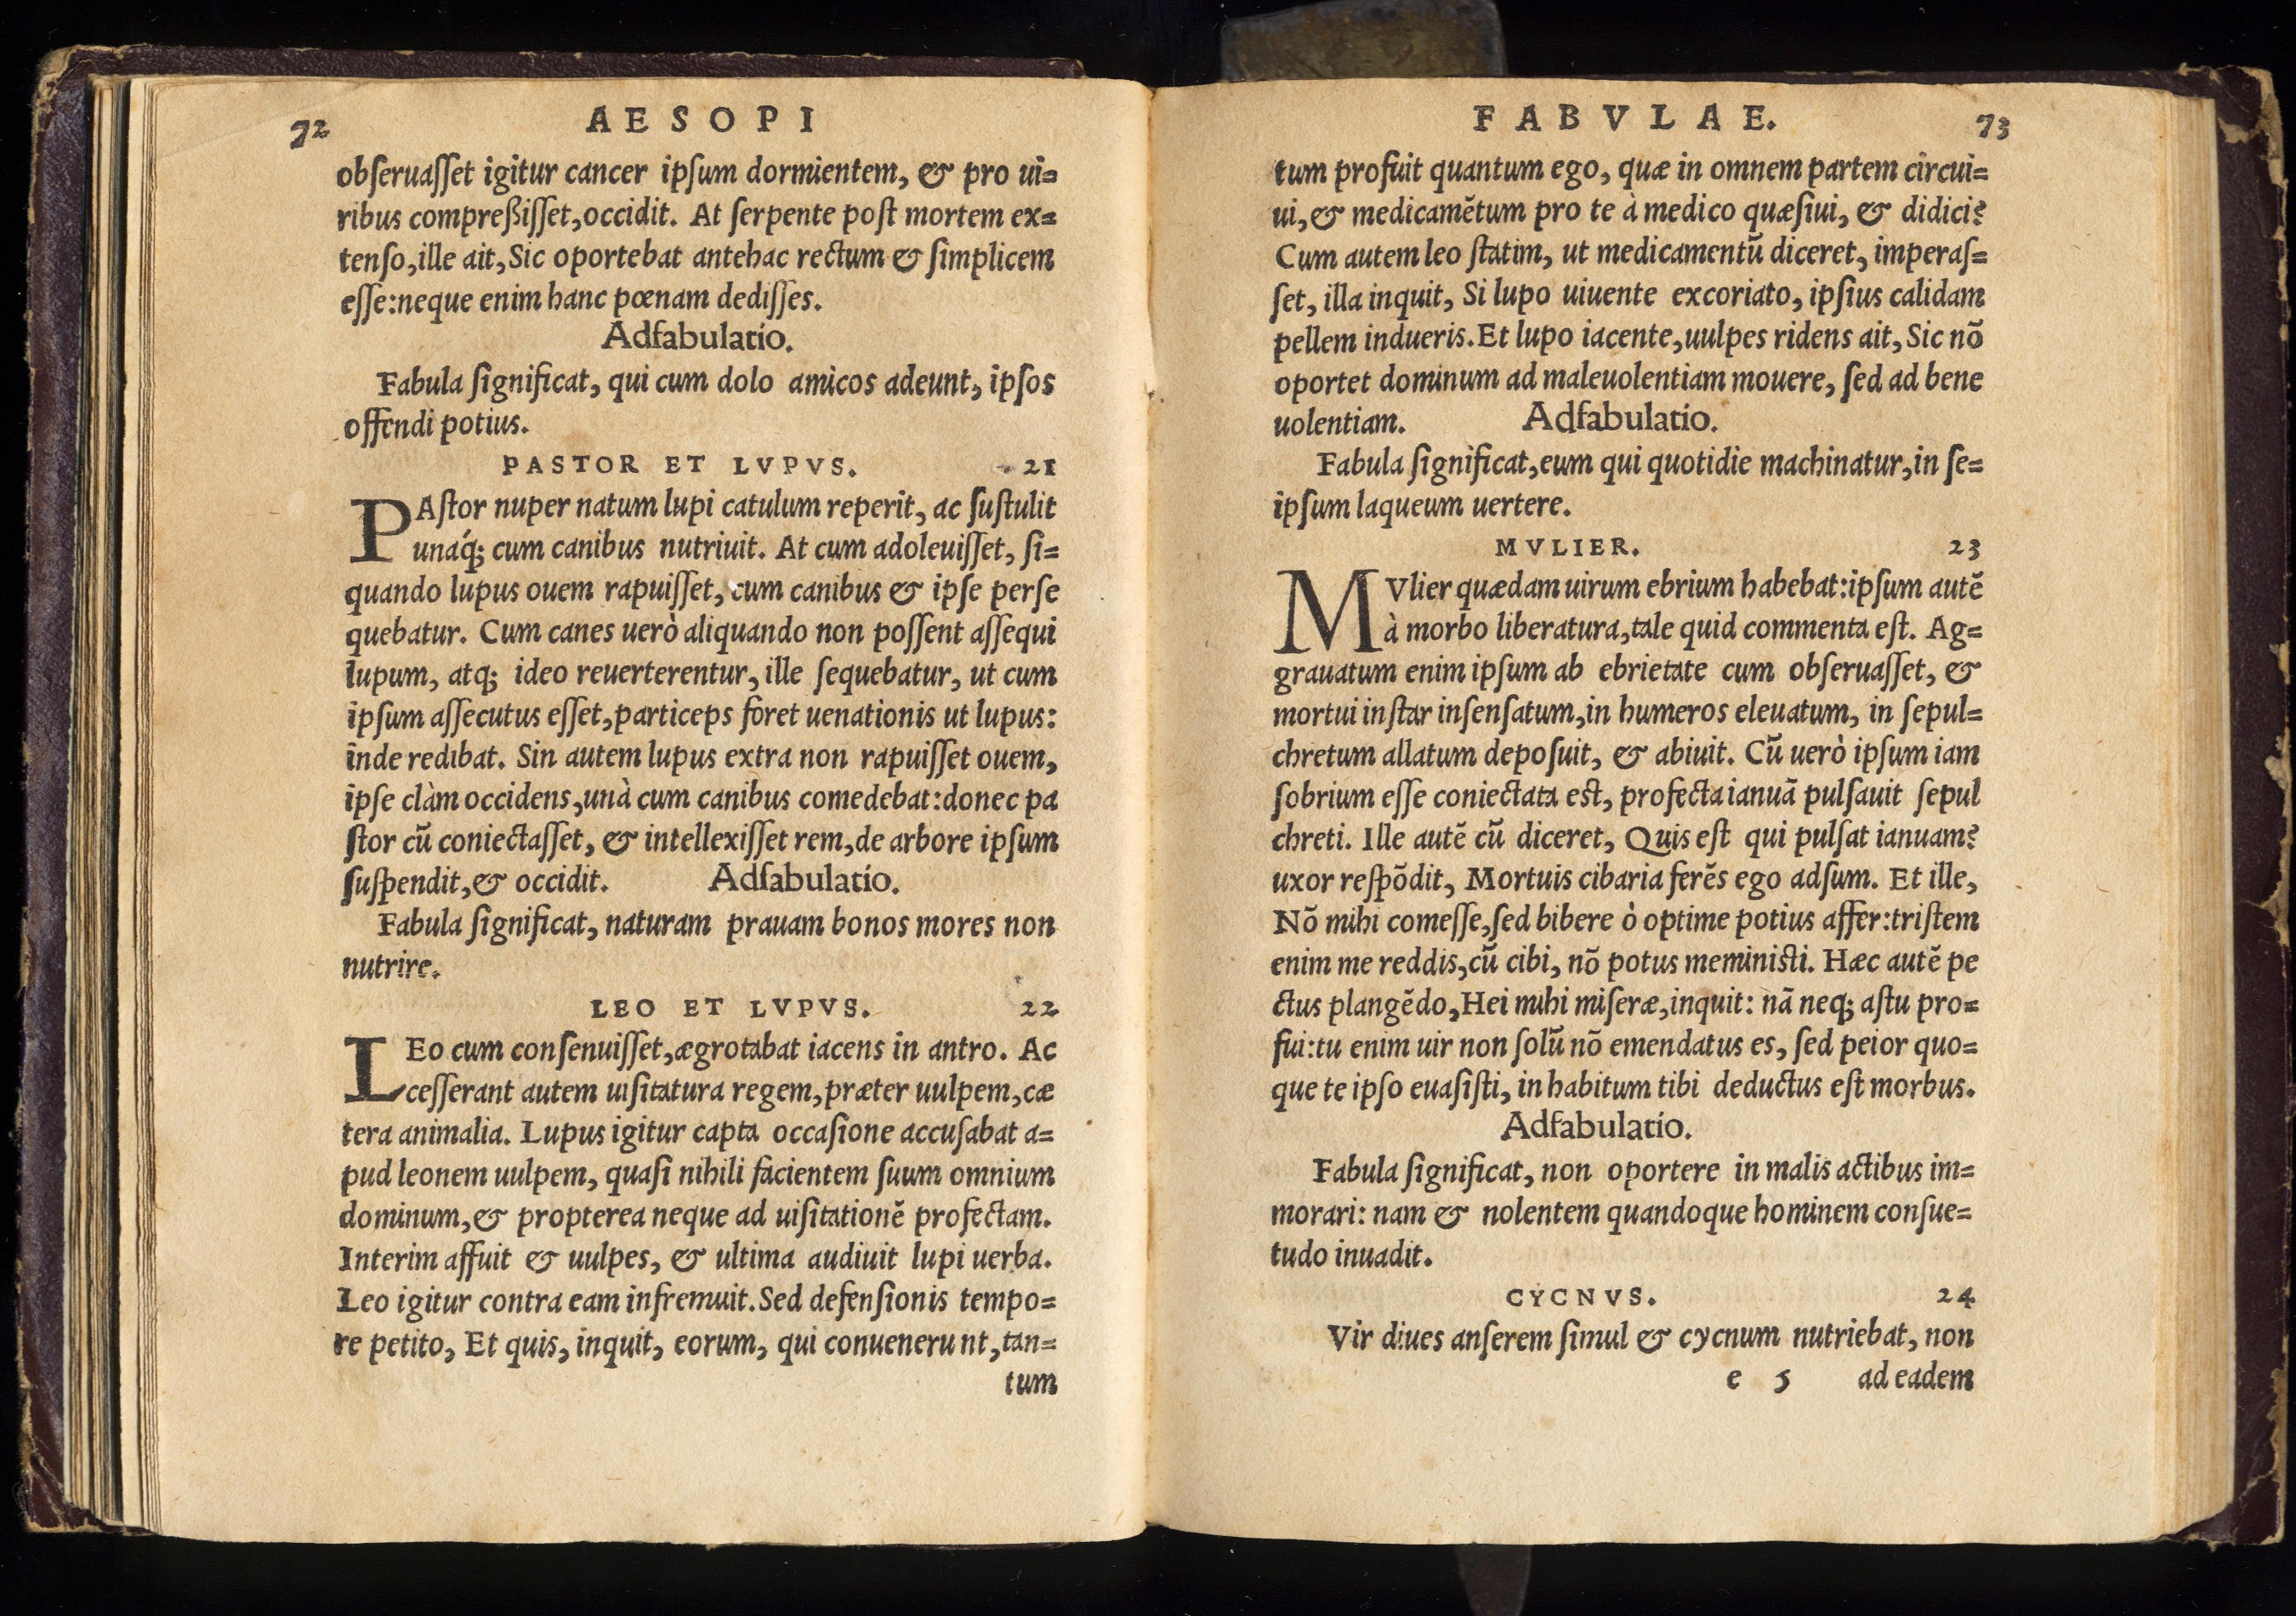 72
AESOPI
obſeruaſſet igitur cancer ipſum dormientem, & pro ui=
ribus compreßiſſet,occidit. At ſerpente poſt mortem ex=
tenſo,ille ait,Sic oportebat antehac rectum & ſimplicem
eſſe:neque enim hanc pœnam dediſſes.
Adfabulatio.
Fabula ſignificat, qui cum dolo amicos adeunt, ipſos
offendi potius.
PASTOR ET LVPVS. 21
PAſtor nuper natum lupi catulum reperit, ac ſuſtulit
unaq́; cum canibus nutriuit. At cum adoleuiſſet, ſi=
quando lupus ouem rapuiſſet, cum canibus & ipſe perſe
quebatur. Cum canes uerò aliquando non poſſent aſſequi
lupum, atq; ideo reuerterentur, ille ſequebatur, ut cum
ipſum aſſecutus eſſet,particeps foret uenationis ut lupus:
inde redibat. Sin autem lupus extra non rapuiſſet ouem,
ipſe clàm occidens,unà cum canibus comedebat:donec pa
ſtor cū coniectaſſet, & intellexiſſet rem,de arbore ipſum
ſuſpendit,& occidit. Adfabulatio.
Fabula ſignificat, naturam prauam bonos mores non
nutrire.
LEO ET LVPVS. 22
LEo cum conſenuiſſet,ægrotabat iacens in antro. Ac
ceſſerant autem uiſitatura regem,præter uulpem,cæ
tera animalia. Lupus igitur capta occaſione accuſabat a=
pud leonem uulpem, quaſi nihili facientem ſuum omnium
dominum,& propterea neque ad uiſitationē profectam.
Interim affuit & uulpes, & ultima audiuit lupi uerba.
Leo igitur contra eam infremuit.Sed defenſionis tempo=
re petito, Et quis, inquit, eorum, qui conuenerunt,tan=
tum
FABVLAE. 73
tum profuit quantum ego, quæ in omnem partem circui=
ui,& medicamētum pro te à medico quæſiui, & didici?
Cum autem leo ſtatim, ut medicamentū diceret, imperaſ=
ſet, illa inquit, Si lupo uiuente excoriato, ipſius calidam
pellem indueris.Et lupo iacente,uulpes ridens ait, Sic nō
oportet dominum ad maleuolentiam mouere, ſed ad bene
uolentiam. Adfabulatio.
Fabula ſignificat,eum qui quotidie machinatur,in ſe=
ipſum laqueum uertere.
MVLIER. 23
MVlier quædam uirum ebrium habebat:ipſum autē
à morbo liberatura,tale quid commenta eſt. Ag=
grauatum enim ipſum ab ebrietate cum obſeruaſſet, &
mortui inſtar inſenſatum,in humeros eleuatum, in ſepul=
chretum allatum depoſuit, & abiuit. Cū uerò ipſum iam
ſobrium eſſe coniectata eſt, profecta ianuā pulſauit ſepul
chreti. Ille autē cū diceret, Quis eſt qui pulſat ianuam?
uxor reſpōdit, Mortuis cibaria ferēs ego adſum. Et ille,
Nō mihi comeſſe,ſed bibere ò optime potius affer:triſtem
enim me reddis,cū cibi, nō potus meminiſti. Hæc autē pe
ctus plangēdo,Hei mihi miſeræ,inquit: nā neq; aſtu pro=
fui:tu enim uir non ſolū nō emendatus es, ſed peior quo=
que te ipſo euaſiſti, in habitum tibi deductus eſt morbus.
Adfabulatio.
Fabula ſignificat, non oportere in malis actibus im=
morari: nam & nolentem quandoque hominem conſue=
tudo inuadit.
CYCNVS. 24
Vir diues anſerem ſimul & cycnum nutriebat, non
e 5 ad eadem